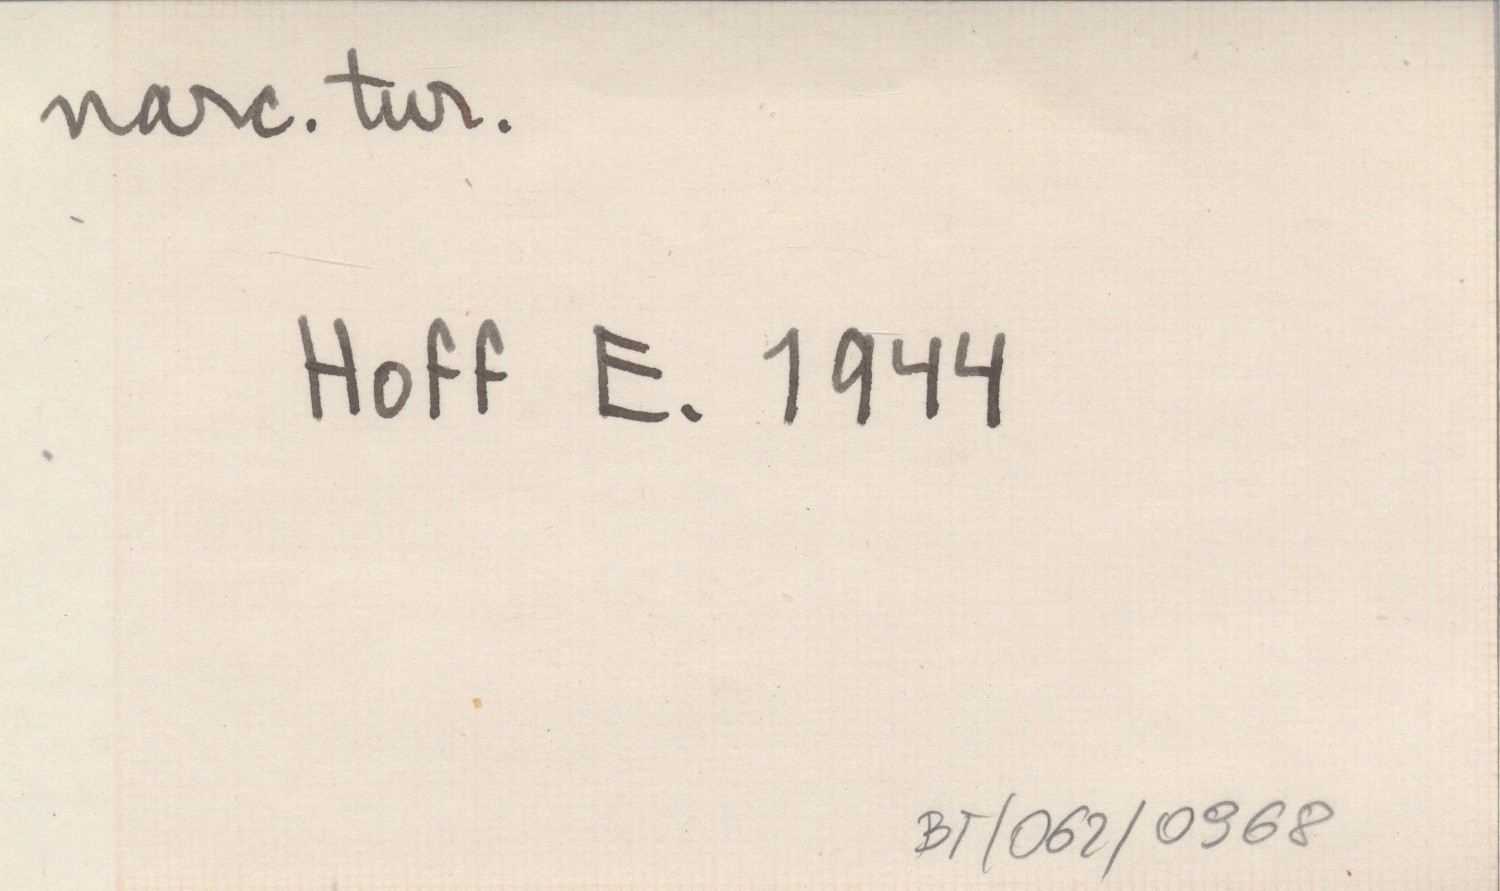 narc. tur.
Hoff E. 1944
BT/062/0968